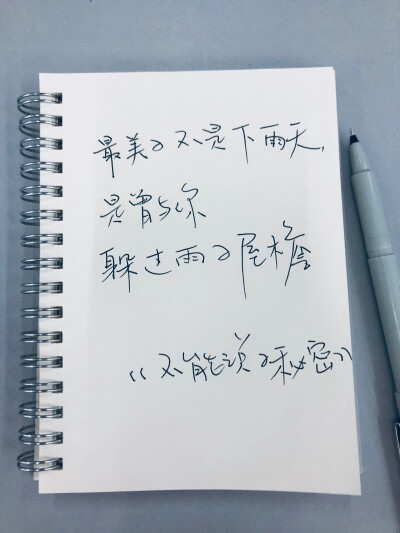 最美的不是下雨天,
是曾与你
躲过雨的屋檐
《不能说的秘密》